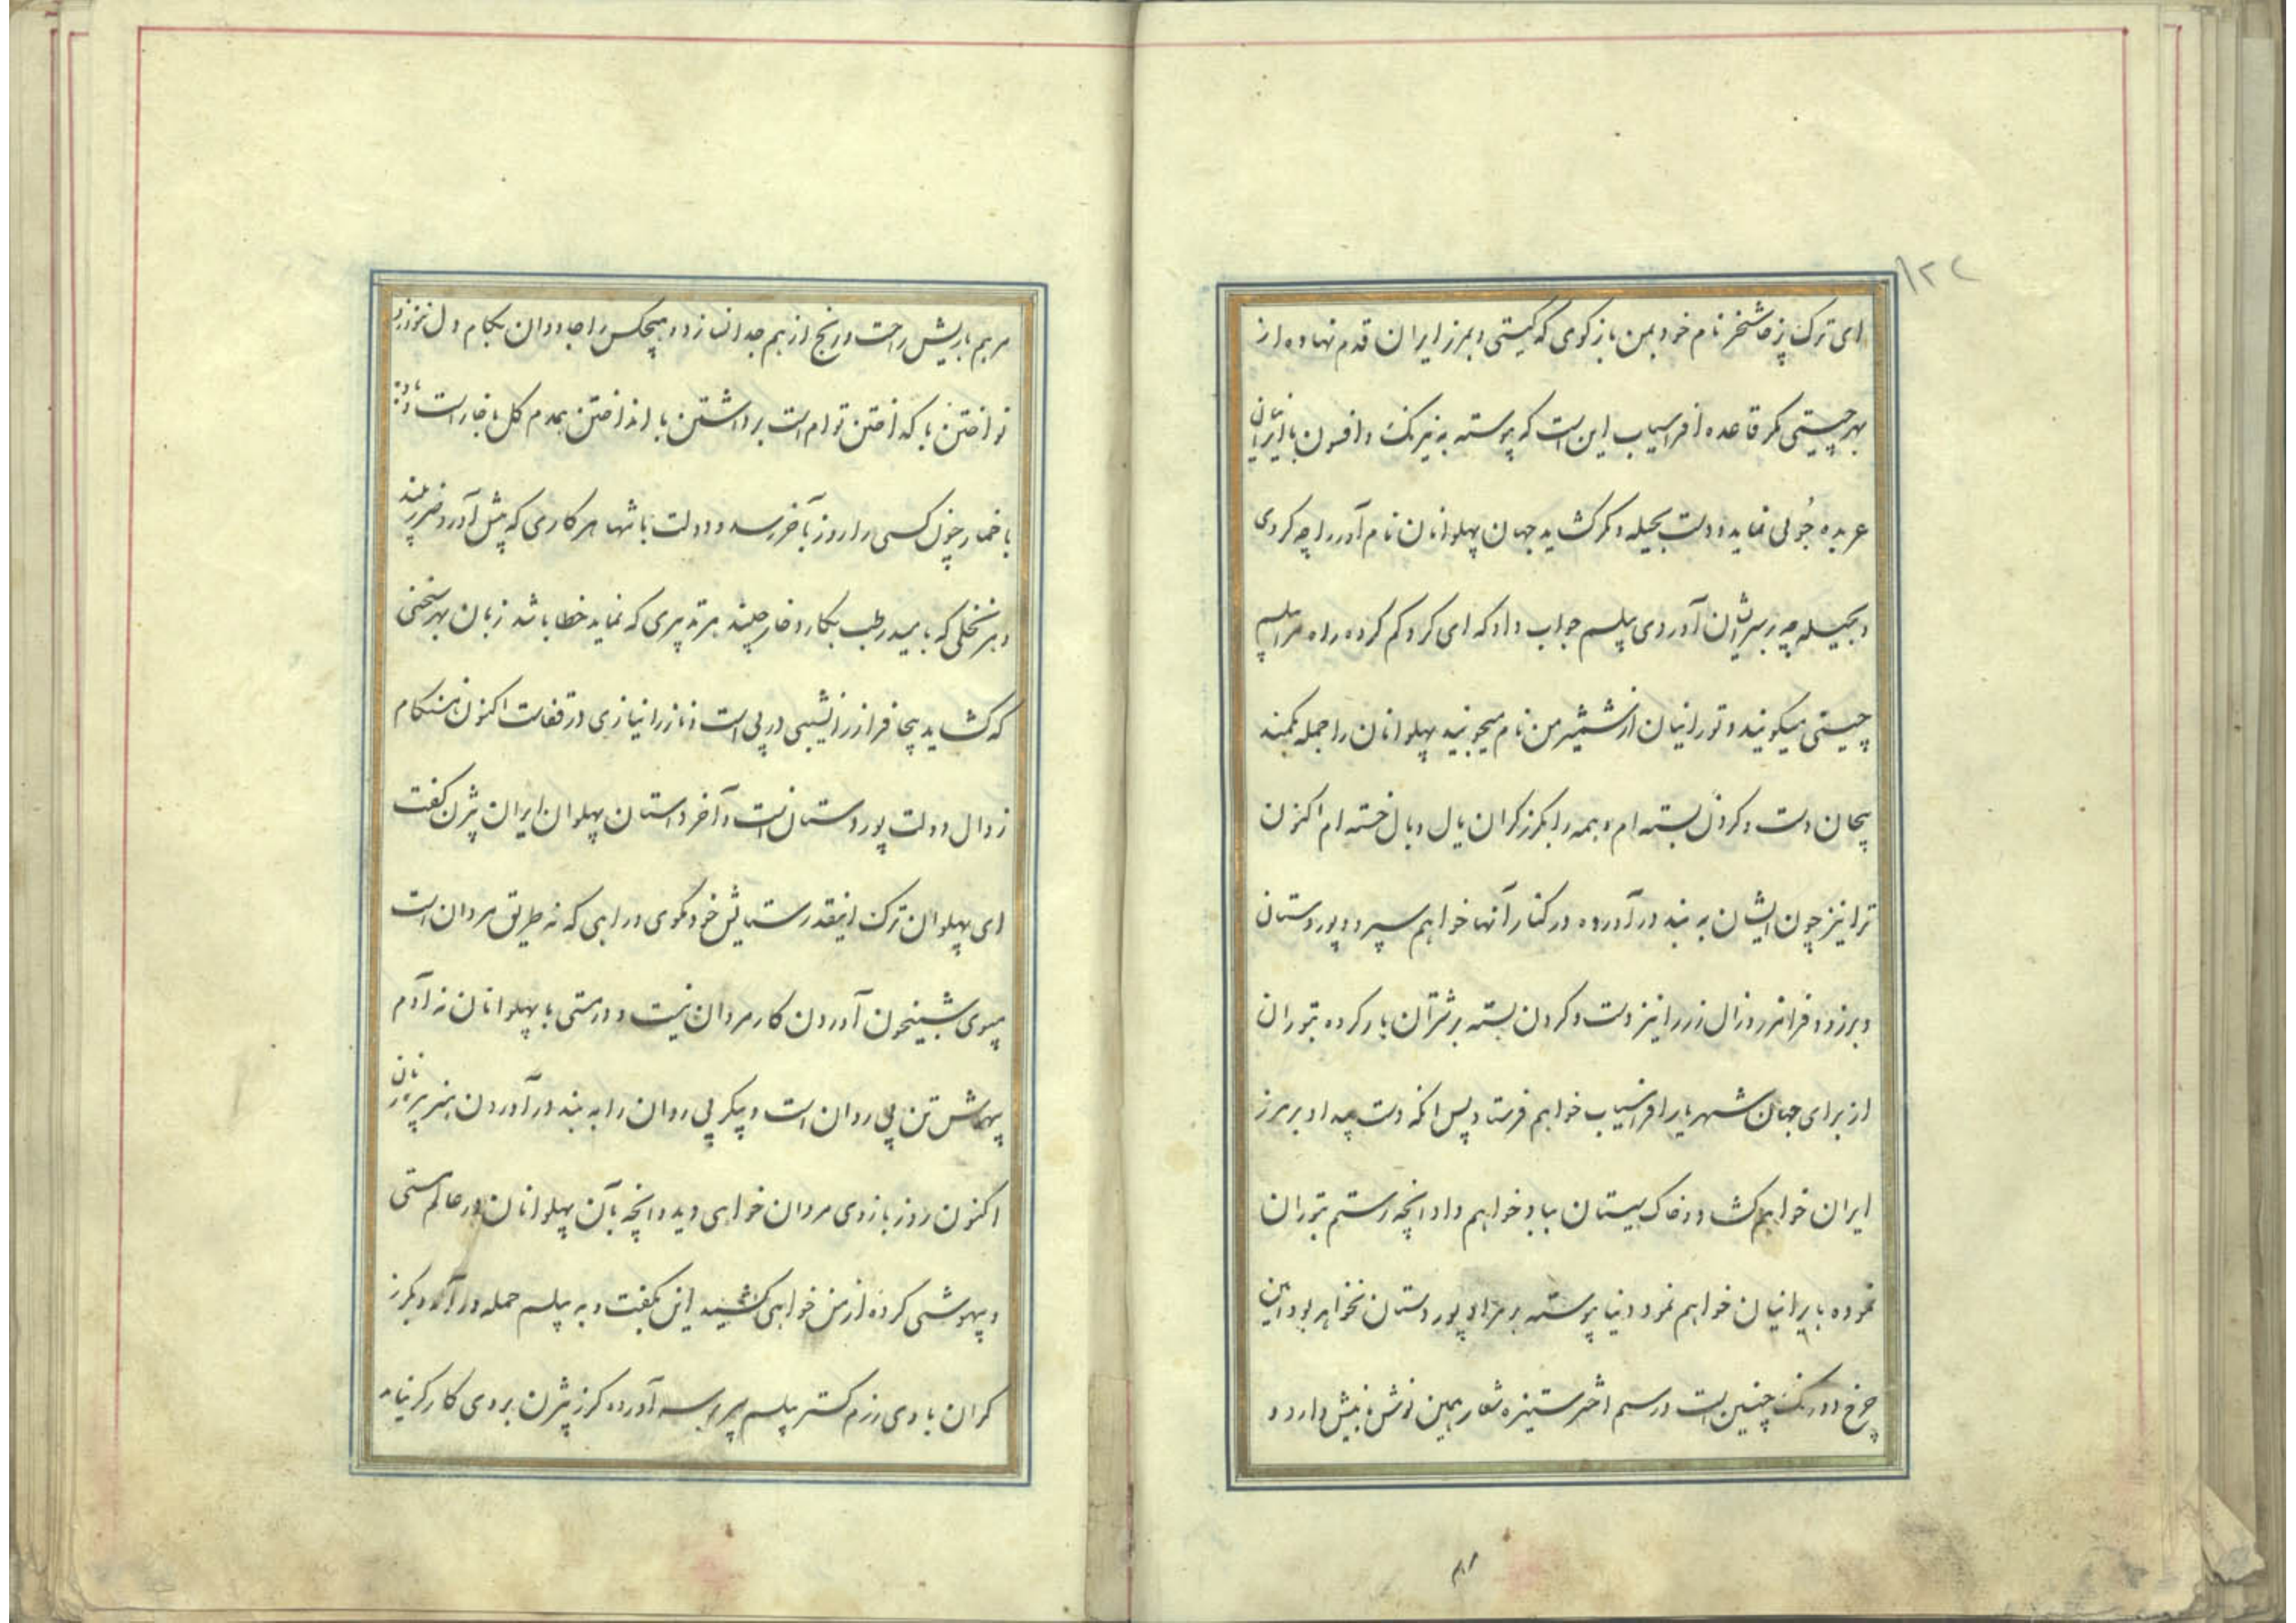 ۱۲۲
ای ترک پرخاشخر نام خود بمن بازگوی که کیستی و بمرز ایران قدم نهاده از
بهر چیستی مگر قاعده افراسیاب این است که پیوسته به نیرنگ و افسون با ایرانیان
عربده جوئی نماید و دست بحیله و مکر گشاید جهان پهلوانان نام آور را چه کردی
و بحیله چه بر سر ایشان آوردی پیلسم جواب داد که ای کرد گم کرده راه مرا پیلسم
چینی میگویند و تورانیان از شمشیر من نام میجویند پهلوانان را جمله بکمند
پیجان دست و گردن بسته ام و همه را بگرز گران یال و بال خسته ام اکنون
ترا نیز چون ایشان به بند در آورده در کنار آنها خواهم سپرد و پور دستان
و برزو و فرامرز و زال زر را نیز دست و گردن بسته بر شتران بار کرده بتوران
از برای جهان شهریار افراسیاب خواهم فرستاد پس آنگه دست بیداد بر مرز
ایران خواهم گشاد و خاک سیستان بباد خواهم داد آنچه رستم بتوران
نموده با ایرانیان خواهم نمود دنیا پیوسته بر مراد پور دستان نخواهد بود آئین
چرخ دو رنگ چنین است و رسم اختر ستیزه شعار همین نوش با نیش دارد و
مرهم با ریش راحت و رنج از هم جدا نسازد و هیچکس را جاودان بکام دل
نواختن با گداختن توام است برداشتن با انداختن همدم گل با خار است و
با خمار چون کسی را روز بآخر رسد و دولت با شها هر کاری که پیش آورد ضرر بیند
و هر نخلی که بامید رطب بکارد خار چیند هر تدبیری که نماید خطا باشد زبان بهر سخنی
که گشاید بیجا فراز را نشیبی در پی است و ناز را نیازی در قفاست اکنون هنگام
زوال دولت پور دستان است و آخر داستان پهلوان ایران بیژن گفت
ای پهلوان ترک اینقدر ستایش خود مگوی و راهی که نه طریق مردان است
مپوی شبیخون آوردن کار مردان نیست و درستی با پهلوانان نه آدم
بیهش تن بی روان است و پیکر بی روان را به بند در آوردن هنر پیر زنان
اکنون روز بازوی مردان خواهی دید و آنچه بآن پهلوانان در عالم مستی
و بیهوشی کرده از من خواهی کشید این بگفت و به پیلسم حمله در آورد و بگرز
گران با وی رزم گستر پیلسم سپر بر سر آورده گرز بیژن بر وی کارگر نیامد